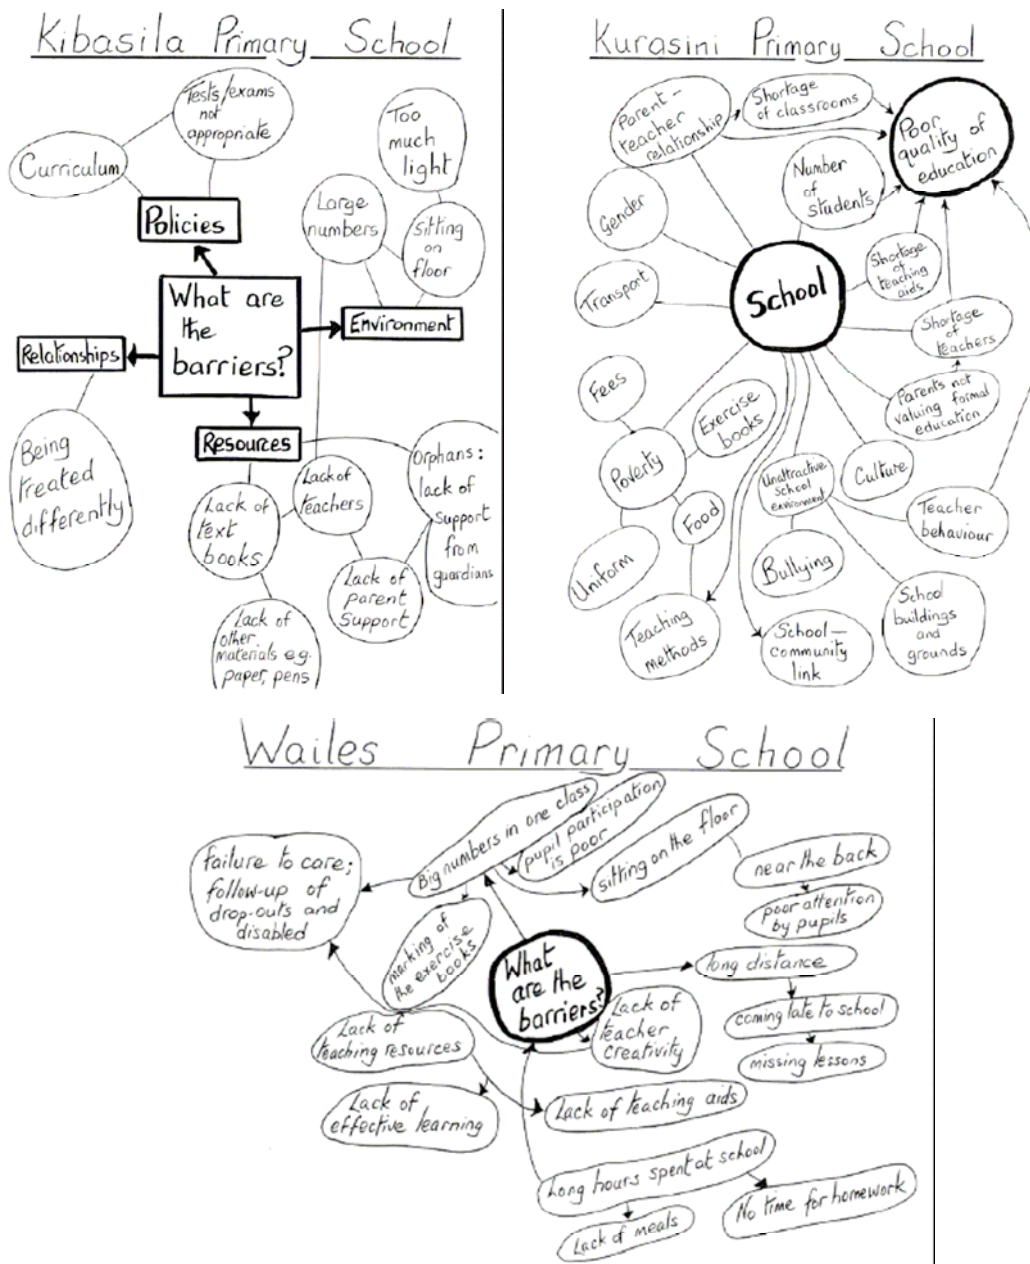 Kibasila Primary School
Tests/exams
not
appropriate
Curriculum
Policies
Too
much
light
Large
numbers
sitting
on
floor
What are
the
barriers?
Environment
Relationships
Being
treated
differently
Resources
Lack of
text
books
Lack of
teachers
Orphans:
lack of
support
from
guardians
Lack of
parent
support
Lack of
other
materials e.g.
paper, pens
Kurasini Primary School
Parent-
teacher
relationship
Shortage
of classrooms
Poor
quality of
education
Number
of
students
Gender
Transport
School
Shortage
of
teaching
aids
Shortage
of
teachers
Parents not
valuing formal
education
Fees
Exercise
books
Poverty
Food
Uniform
Teaching
methods
Unattractive
school
environment
Culture
Teacher
behaviour
Bullying
School-
community
link
School
buildings
and
grounds
Wailes Primary School
Big numbers in one class
pupil participation
is poor
sitting on the floor
near the back
poor attention
by pupils
failure to care;
follow-up of
drop-outs and
disabled
marking of
the exercise
books
What
are the
barriers?
long distance
coming late to school
missing lessons
Lack of
teacher
creativity
Lack of
teaching resources
Lack of
effective learning
Lack of teaching aids
Long hours spent at school
No time for homework
Lack of meals